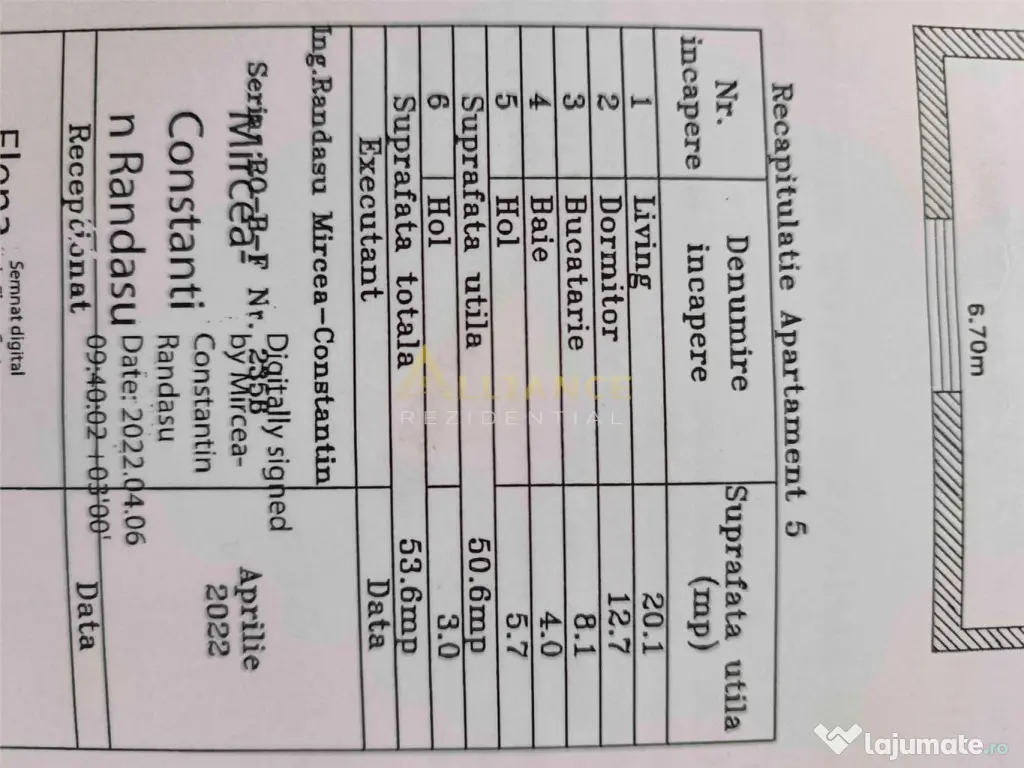 6.70m
Recapitulatie Apartament 5
Nr. incapere Denumire incapere Suprafata utila (mp)
1 Living 20.1
2 Dormitor 12.7
3 Bucatarie 8.1
4 Baie 4.0
5 Hol 5.7
Suprafata utila 50.6mp
6 Hol 3.0
Suprafata totala 53.6mp
Executant Data
Ing.Randasu Mircea-Constantin
Seria RO-B-F Nr. 2355B
Aprilie
2022
Mircea-
Constanti
n Randasu
Digitally signed
by Mircea-
Constantin
Randasu
Date: 2022.04.06
09:40:02 +03'00'
Receptionat Data
Semnat digital
ALLIANCE
REZIDENTIAL
lajumate.ro